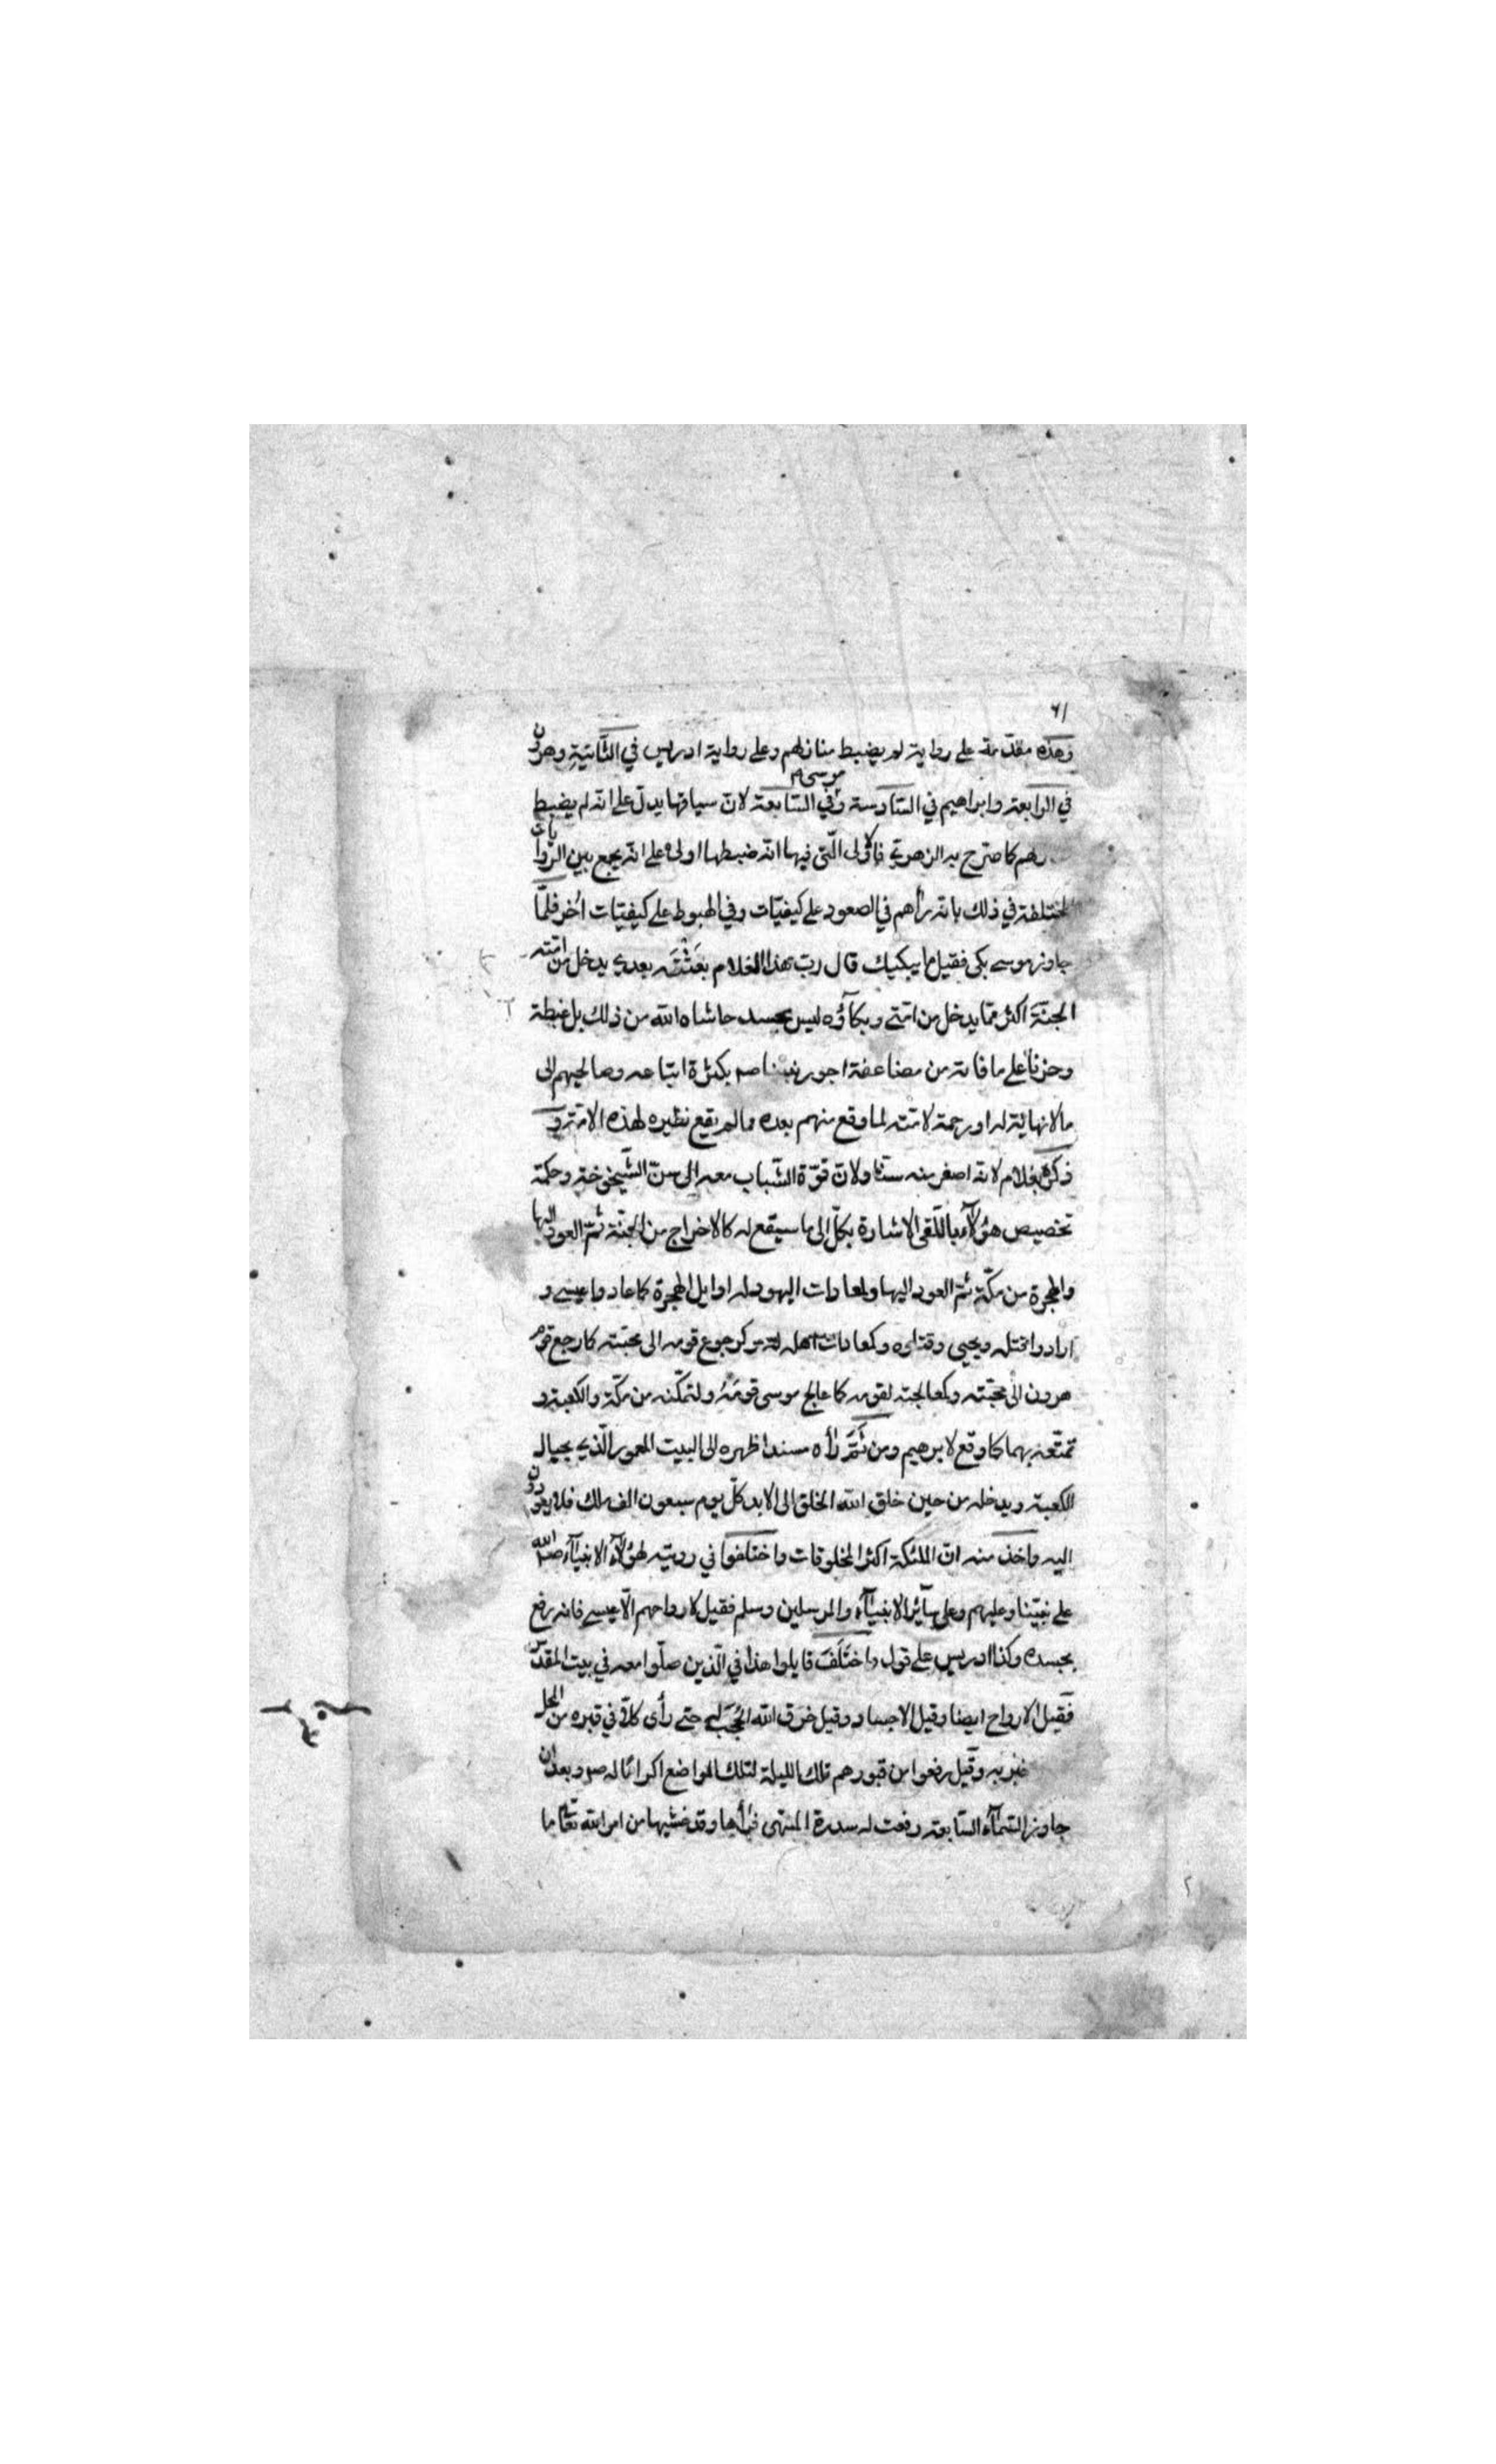 ٦١
وهذه مقدّمة على رواية لم يضبط منازلهم وعلى رواية ادريس في الثّانيةِ وهرون
في الرابعة وابراهيم في السّادسة وفي السّابعة موسى لانّ سياقها يدلّ على انّه لم يضبط
كما صرّح به الزهري فالاولى الّتي فيها انّه ضبطها اولى على انّه يجمع بين الرّوايات
المختلفة في ذلك بانّه رأهم في الصعود على كيفيّات وفي الهبوط على كيفيّات اُخر فلمّا
جاوز موسى بكى فقيل ما يبكيك قال ربّ هذا الغلام بعَثْتَه بعدي يدخل من امّته
الجنّةَ اكثر ممّا يدخل من امّتي وبكاؤه ليس بحسد حاشاه الله من ذلك بل غبطة
وحزناً على ما فاته من مضاعفة اجور نبينا صم بكثرة اتباعه وصالحيهم الى
ما لا نهاية له او رحمة لامّته لما وقع منهم بعده ما لم يقع نظيره لهذه الامّة و
ذكره بغلام لانه اصغر منه سنّا ولانّ قوّة الشّباب معه الى سنّ الشّيخوخة وحكمة
تخصيص هؤلاء باللّقى الاشارة بكلّ الى ما سيقع له كالاخراج من الجنّة ثمّ العود اليها
والهجرة من مكّة ثمّ العود اليها ولمعادات اليهود له اوايل الهجرة كما عادوا عيسى و
ارادوا قتله ويحيى وقتلوه وكمعادات اهله له وكرجوع قومه الى محبّته كما رجع قوم
هرون الى محبّته وكمعالجته لقومه كما عالج موسى قومَهُ ولتمكّنه من مكّة والكعبة و
تمتّعه بهما كما وقع لابرهيم ومن ثَمَّ رأه مسندا ظهره الى البيت المعمور الّذي بحيال
الكعبة ويدخله من حين خلق الله الخلق الى الابد كلّ يوم سبعون الف ملك فلا يعودون
اليه واخذ منه انّ الملئكة اكثر المخلوقات واختلفوا في رويته لهؤلاء الانبياء صلى الله
على نبيّنا وعليهم وعلى سآئر الانبيآء والمرسلين وسلم فقيل لارواحهم الّا عيسى فانه رفع
بجسده وكذا ادريس على قول واختَلَفَ قايلوا هذا في الّذين صلّوا معه في بيت المقدّس
فقيل الارواح ايضا وقيل الاجساد وقيل خرق الله الحُجَب له حتى رأى كلاّ في قبره من المحل
خبر به وقيل رفعوا من قبورهم تلك الليلة لتلك المواضع اكراماً له صم وبعد ان
جاوز السّمآء السّابعة رفعت له سدرة المنتهى فرأها وقد غشيها من امر الله تعالى ما